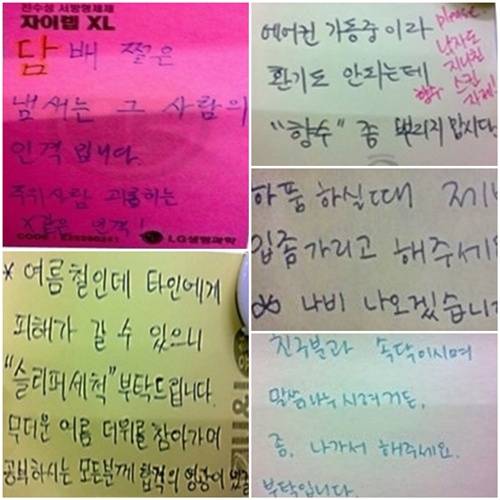 진수성 서방형제제
자이렙 XL
담배 쩔은
냄새는 그 사람의
인격입니다.
주위사람 괴롭히는
X같은 인격!
LG생명과학
에어컨 가동중이라
환기도 안되는데
"향수" 좀 뿌리지 맙시다.
please
남자도
지나친
향수 스킨
자제!
하품 하실때 제
입좀 가리고 해주세
나비 나오겠습니
* 여름철인데 타인에게
피해가 갈 수 있으니
"슬리퍼세척" 부탁드립니다.
무더운 여름 더위를 참아가며
공부하시는 모든분께 합격의 영광이 있길
친구분과 속닥이시며
말씀나누시려거든,
좀, 나가서 해주세요.
부탁입니다.